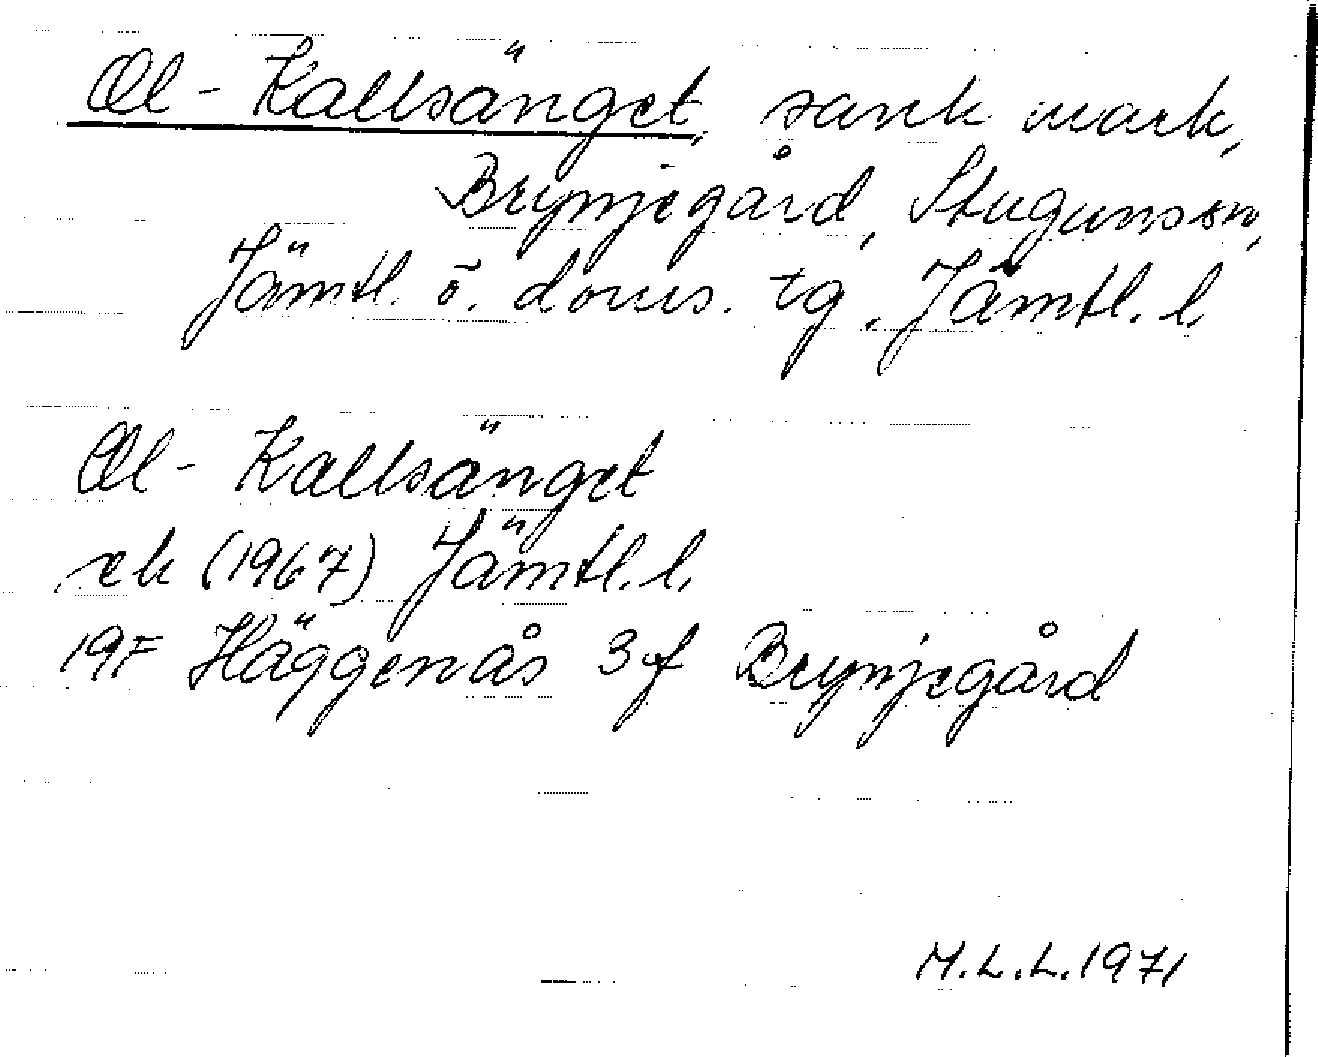 Ol-Kallsänget, sank mark,
Brynjegård, Stuguns sn,
Jämtl. ö. doms. tg, Jämtl. l.
Ol-Kallsänget
ek (1967) Jämtl. l.
19F Häggenås 3f Brynjegård
M.L.L. 1971